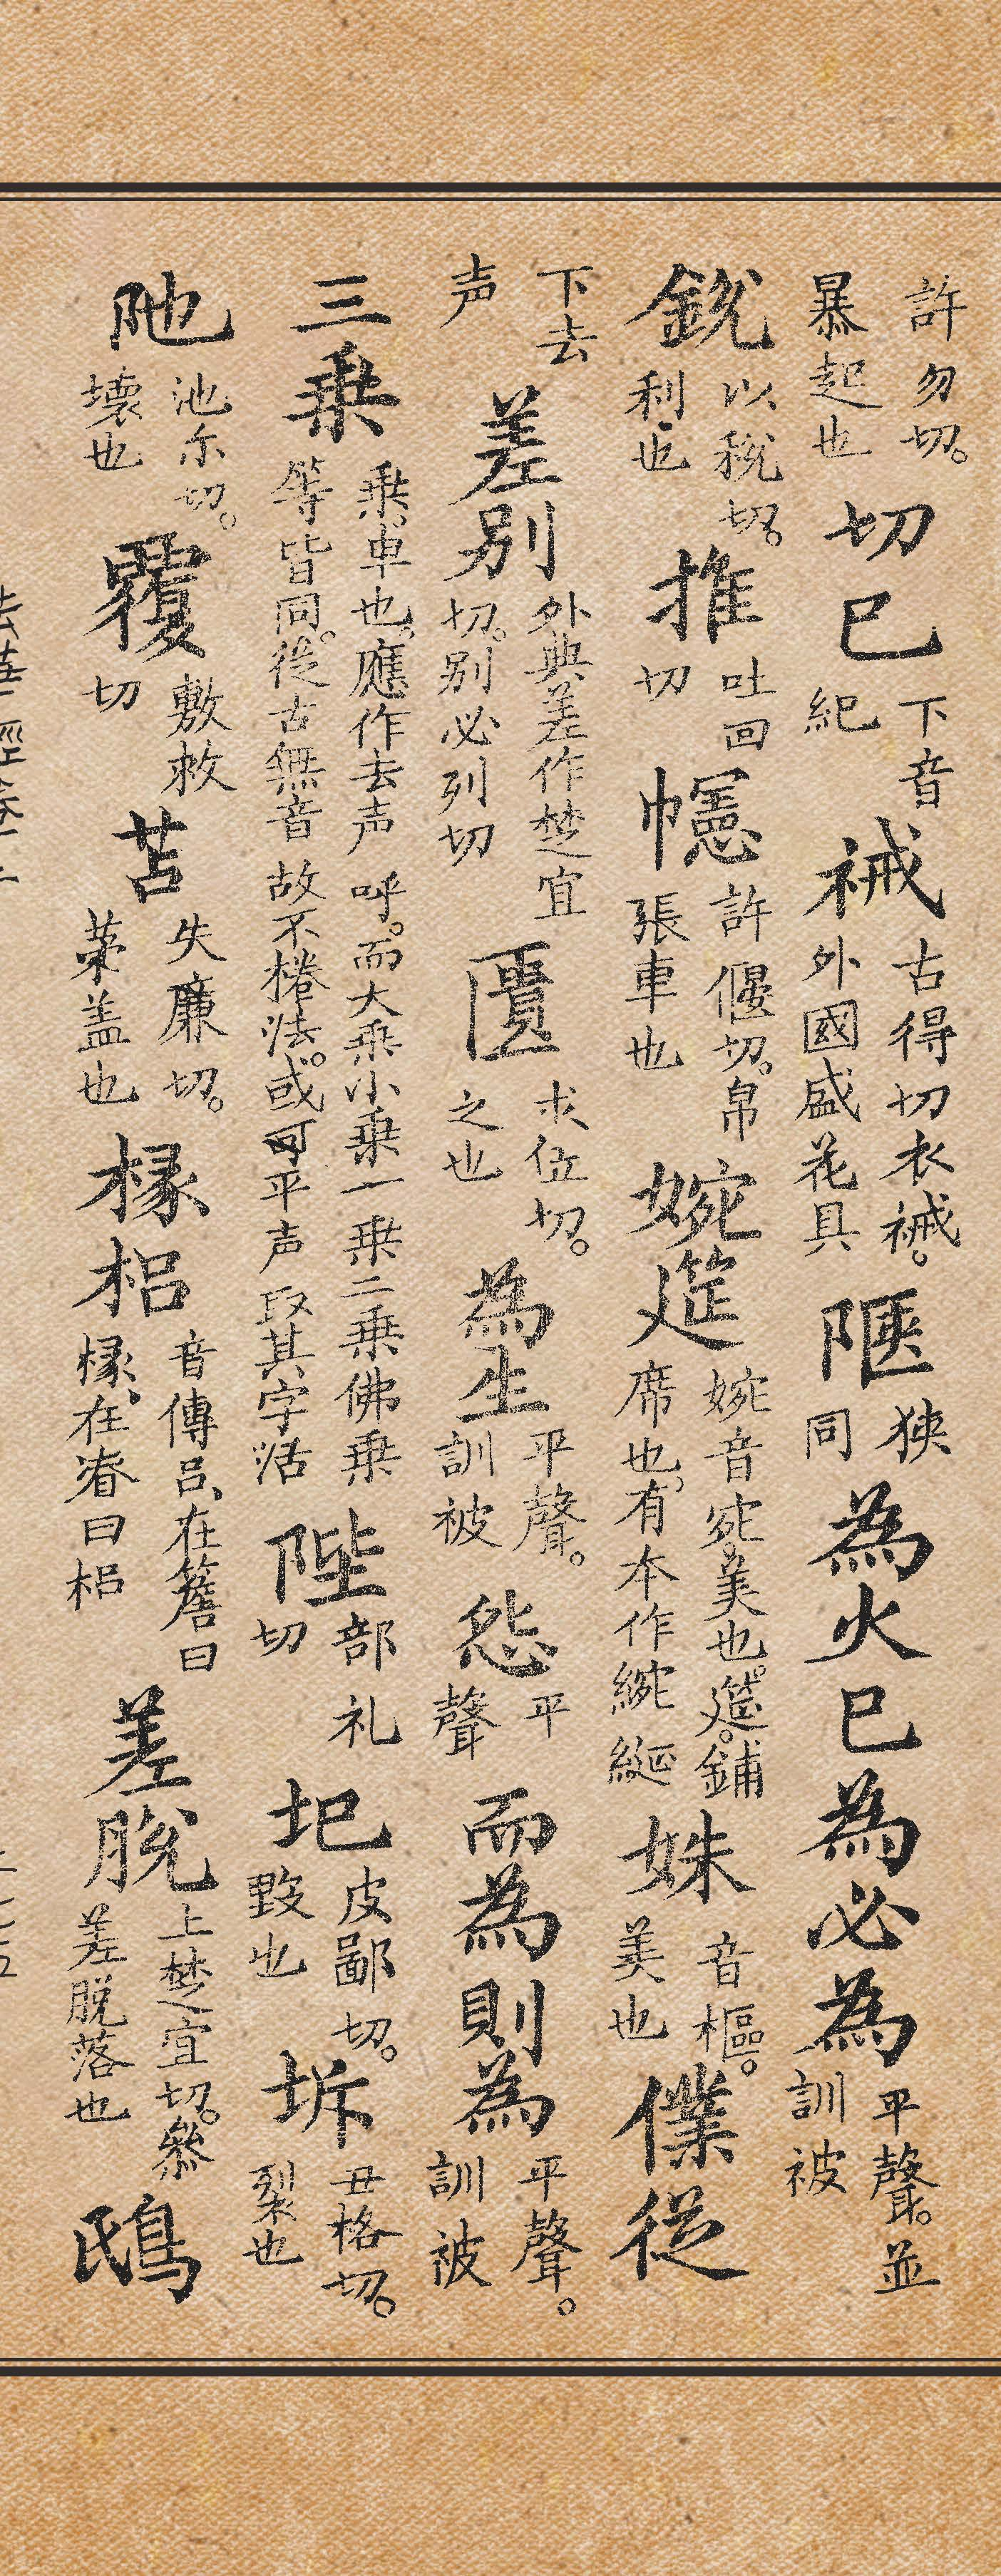 許勿切。暴起也 切已 下音紀 裓 古得切衣裓。外國盛花具 陿 狹同 為火 已為 必為 平聲。並訓被
銳 以稅切。利也 推 吐回切 幰 許偃切。帛張車也 婉筵 婉音宛。美也。筵。鋪席也，有本作綩綖 姝 音樞。美也 僕從
下去声 差別 外典差作楚宜切。別必列切 匱 求位切。之也 為生 平聲。訓被 怨 平聲 而為 則為 平聲。訓被
三乗 乗。車也。應作去声呼。而大乗小乗一乗二乗佛乗等皆同。從古無音故不捲法。或可平声取其字活 陛 部礼切 圮 皮鄙切。毀也 坼 丑格切。裂也
阤 池尔切。壞也 覆 敷救切 苫 失廉切。草盖也 椽梠 音傳吕、在簷曰椽、在脊曰梠 差脫 上楚宜切。叅差脫落也 鴟